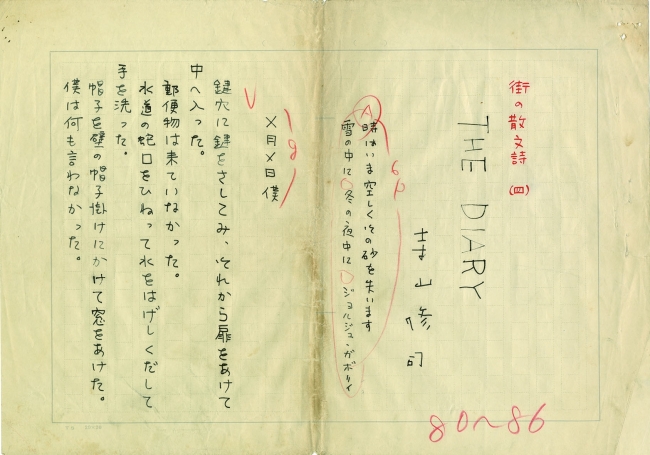 街の散文詩 (四)
THE DIARY
寺山修司
A
6P
時はいま空しくその砂を失います
雪の中に 冬の夜中に ジョルジュ・ガボリイ
×月×日 僕
鍵穴に鍵をさしこみ、それから扉をあけて
中へ入った。
郵便物は来ていなかった。
水道の蛇口をひねって水をはげしくだして
手を洗った。
帽子を壁の帽子掛けにかけて窓をあけた。
僕は何も言わなかった。
80〜86